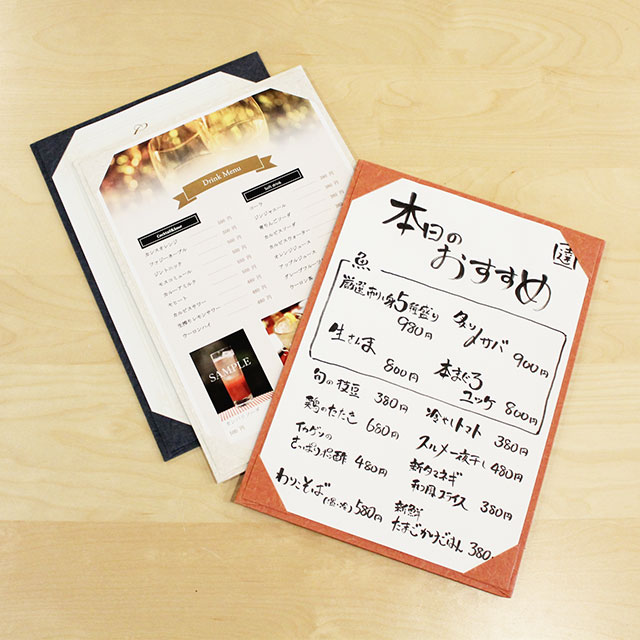 Drink Menu
Cocktail&Sour
カシスオレンジ
ファジーネーブル
ジントニック
モスコミュール
カルーアミルク
モヒート
カルピスサワー
生搾りレモンサワー
ウーロンハイ
Soft drink
コーラ
ジンジャエール
カルピスソーダ
カルピスウォーター
オレンジジュース
SAMPLE
本日の
おすすめ
達
魚
厳選刺身5種盛り
980円
炙り〆サバ
900円
生さんま
800円
本まぐろ
ユッケ 800円
旬の枝豆 380円
鶏のたたき 680円
さっぱり 480円
わりこそば 580円
冷やしトマト 380円
スルメ一夜干し 480円
新タマネギ
和風スライス 380円
新鮮
たまごかけごはん 380